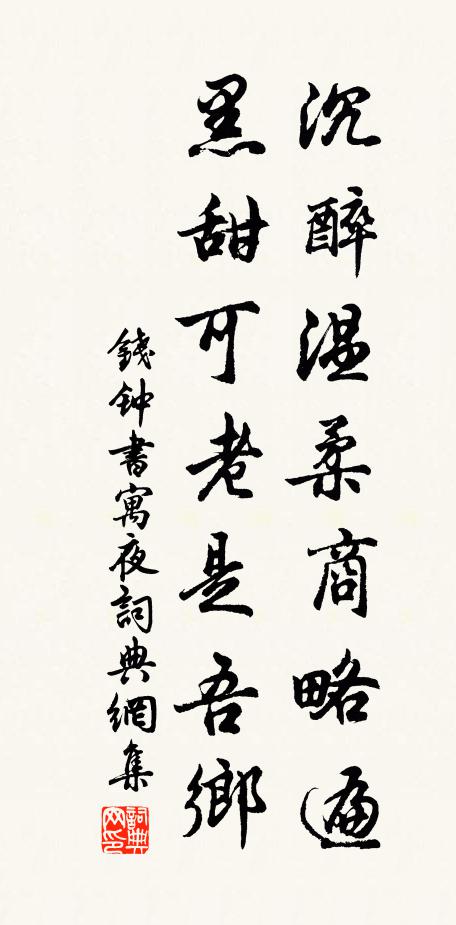 沉醉温柔商略遍
黑甜可老是吾鄉
錢鈡書寓夜詞典網集
詞典
网印